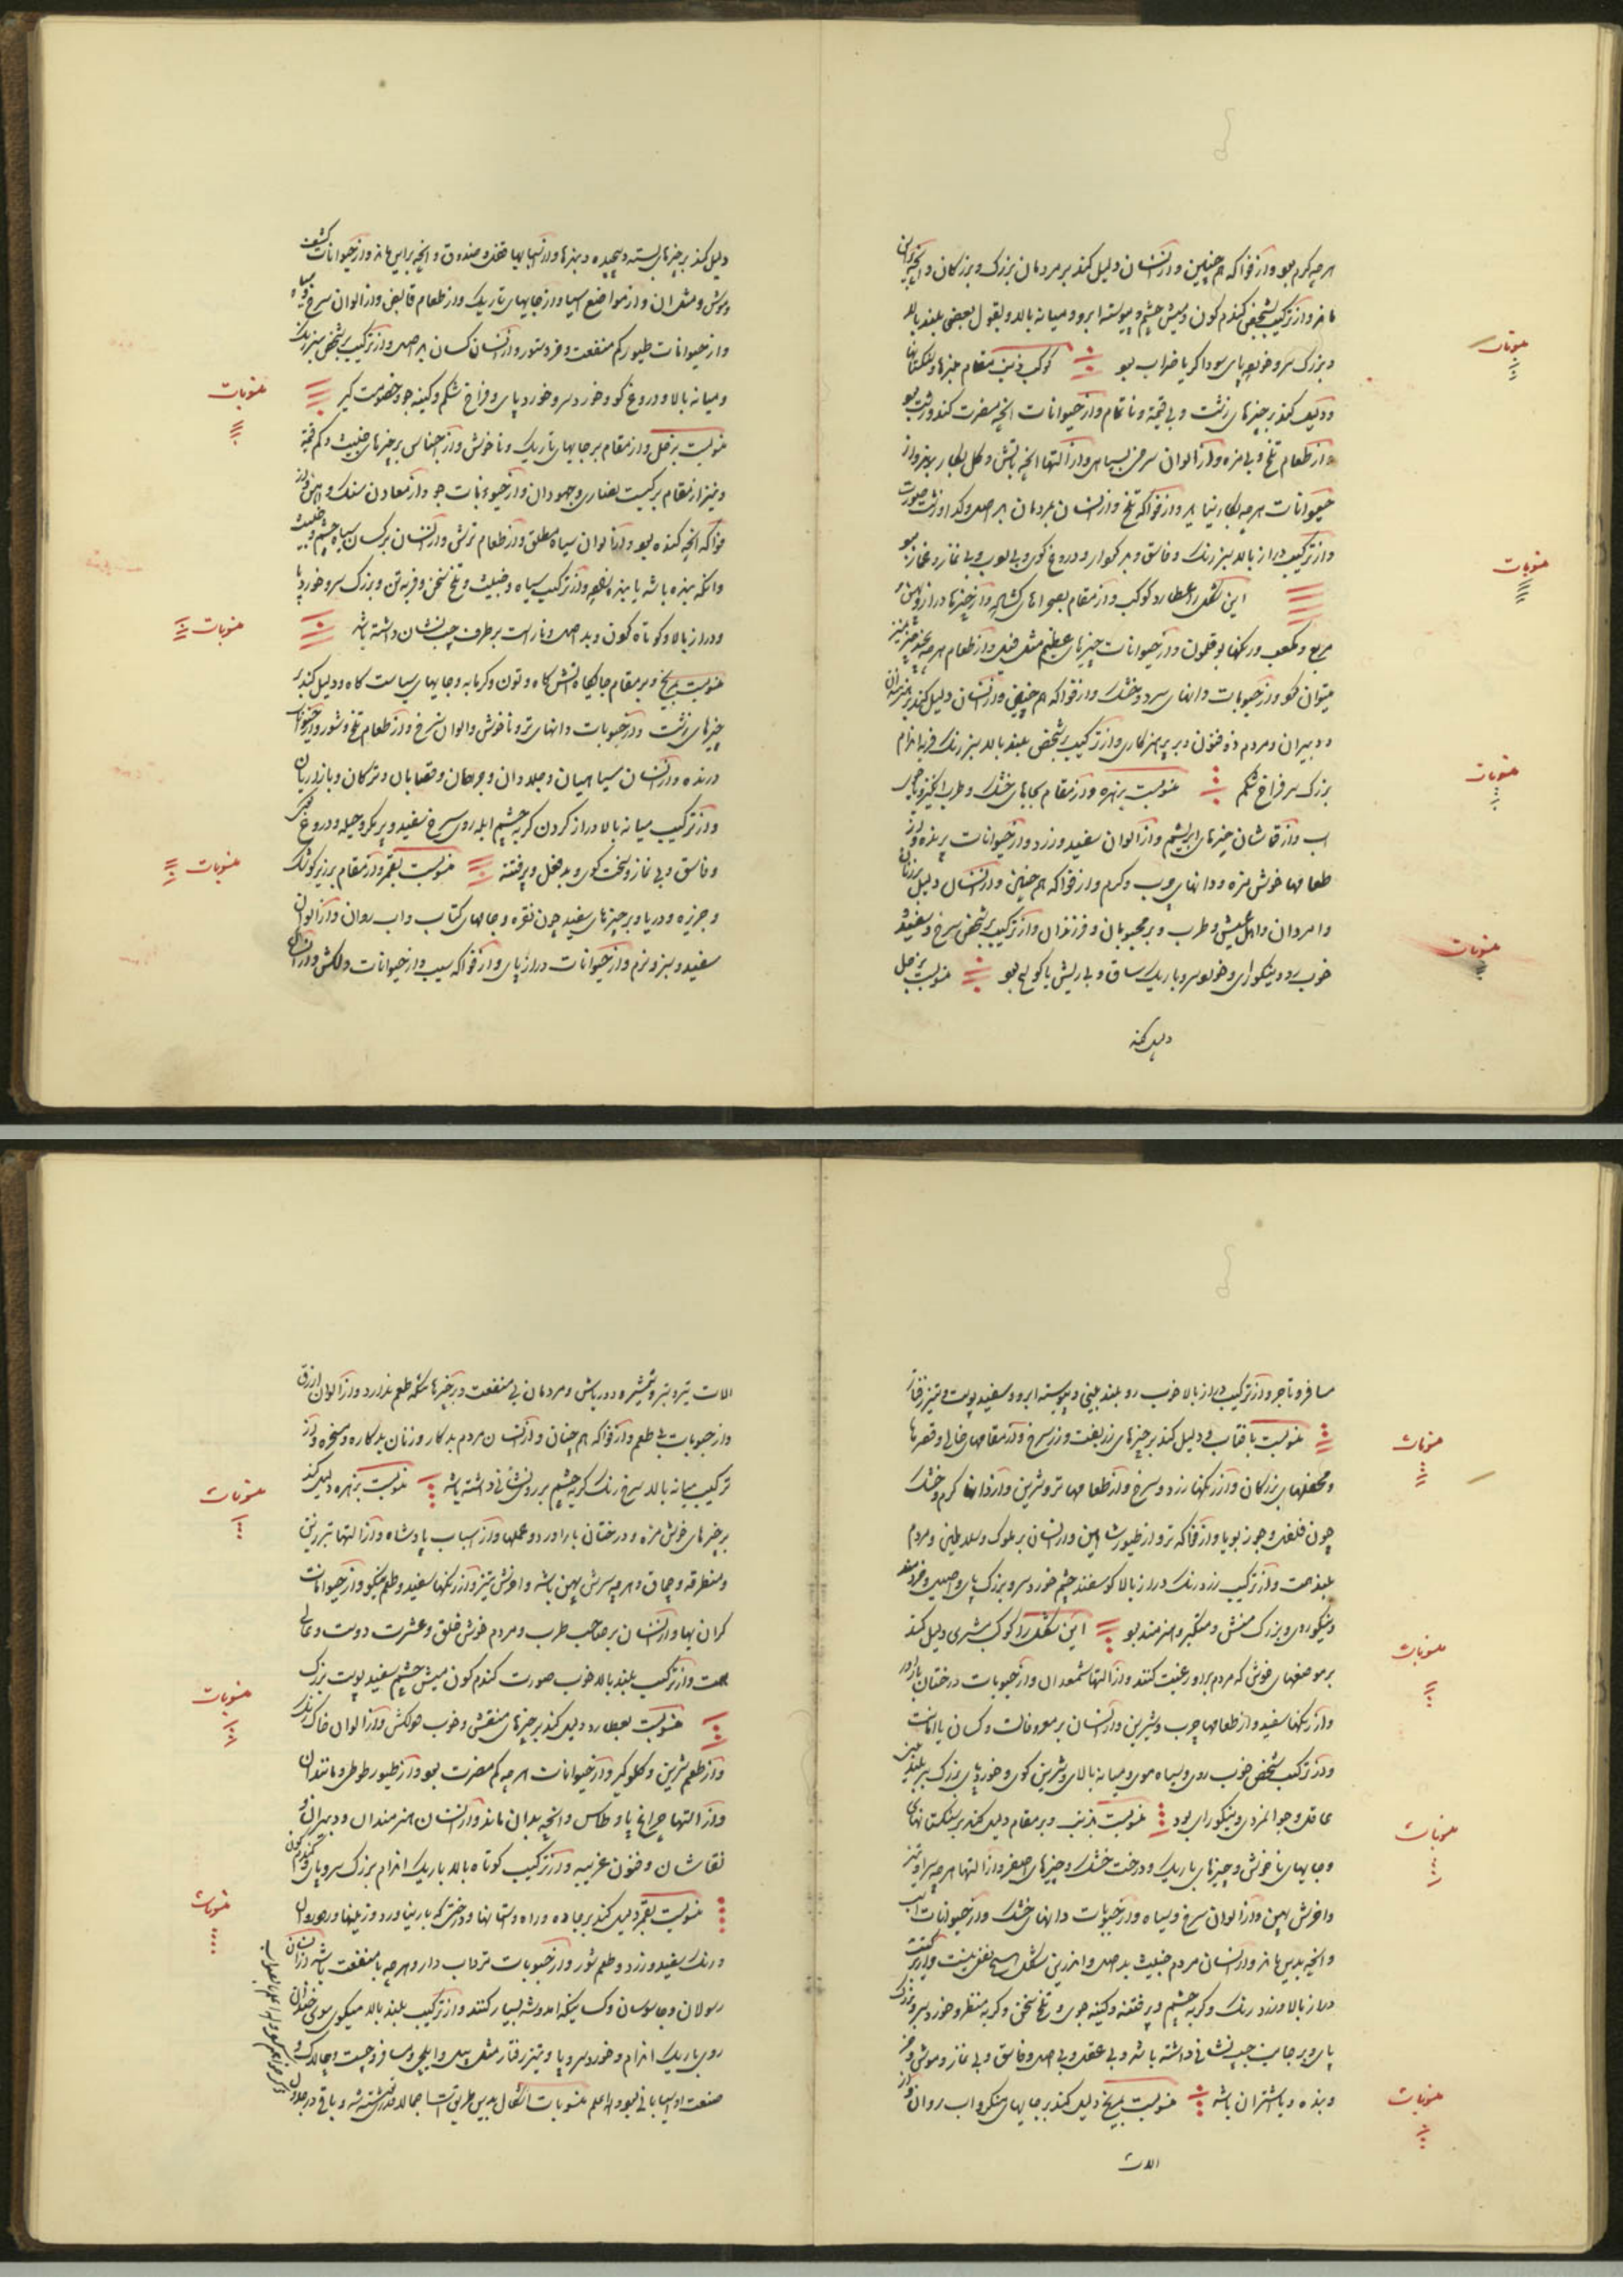 هرچه گرم بود و از فواکه هم چنین و از انسان دلیل کند بر مردمان بزرگ و بزرگان و آنچه بدین
ماند و از ترکیب شخصی گندم گون و میش چشم و پیوسته ابرو و میانه بالا و بقول بعضی بلند بالا
و بزرگ سر و خورد پای سوداگر یا ضراب بود کوکب ذنب مقام
منسوبات
و دلیل کند بر چیزهای زشت و بی قیمة و ناتمام و از حیوانات آنچه مضرت کند
و از طعام تلخ و بی مزه و از الوان سرخی بسیاهی و از آلتها آنچه بآتش و گل بکار برند و از
حیوانات هرچه بکار نیاید و از فواکه تلخ و از انسان بر مردمان بد اصل و
و از ترکیب دراز بالا سبز رنگ و فاسق و بدکردار و دروغ گوی و بی ادب و بی نماز و غماز بود
این شکل را عطارد کوکب و از مقام بصحراهای گشاده و از چیزها دراز و
منسوبات
مربع و مکعب و رنگها بوقلمون و از حیوانات چیزهای عظیم مثل فیل و از طعام هرچه
میتوان کو و از حبوبات دانهای سرد و خشک و از فواکه هم چنین و از انسان دلیل کند بر
و دبیران و مردم ذو فنون و بر پرهیزکاری و از ترکیب بر شخص بلند بالا سبز رنگ فربه اندام
بزرگ سر فراخ شکم منسوبست بزهره و از مقام بجایهای خشک و طرب انگیز و
منسوبات
آب و از قماشان چیزهای ابریشم و از الوان سفید و زرد و از حیوانات پرنده و از
طعامها خوش مزه و دانهای چرب و گرم و از فواکه هم چنین و از انسان دلیل بر زنان
و امردان و اهل عیش و طرب و بر محبوبان و فرزندان و از ترکیب بر شخص سرخ و سفید و
خوب رو و نیکورای و خورد سر و باریک ساق و بی ریش یا کوسه بود منسوبست بزحل
منسوبات
دلیل کند
دلیل کند بر چیزهای بسته و پیچیده و بندها و از آلتها قفل و صندوق و آنچه بدین ماند و از حیوانات کشف
و موش و مثل آن و از مواضع آسیا و از جایهای تاریک و از طعام قابض و از الوان سرخ و سیاه
و از حیوانات طیور کم منفعت و خر و ستور و از انسان کسان بد اصل و از ترکیب بر شخص سبز رنگ
و میانه بالا و دروغ گو و خورد سر و خورد پای و فراخ شکم و کینه جو و خصومت گیر
منسوبات
منسوبست بزحل و از مقام بر جایهای تاریک و ناخوش و از اجناس بر چیزهای خبیث و کم قیمة
و نیز از مقام بر کنیست نصاری و جهودان و از حبوبات جو و از معادن سنگ و آهن و از
فواکه آنچه گنده بود و از الوان سیاه مطلق و از طعام ترش و از انسان بر کسان سیاه چشم و خبیث
و آنکه بنده باشد یا بنده بچه و از ترکیب سیاه و خبیث و تلخ سخن و فربه تن و بزرگ سر و خورد پا
و دراز بالا و کوتاه گون و بد اصل و ناراست بر طرف چپ نشان داشته باشد
منسوبات
منسوبست بمریخ و بر مقام جایگاه آتش گاه و تون و گرمابه و جایهای سیاست گاه و دلیل کند بر
چیزهای زشت و از حبوبات دانهای تر و ناخوش و الوان سرخ و از طعام تلخ و شور و از حیوانات
درنده و از انسان سپاهیان و جلادان و جراحان و قصابان و ترکان و بازداریان
و از ترکیب میانه بالا دراز گردن گربه چشم آبله روی سرخ سفید و بر مکر و حیله و دروغ گو
و فاسق و بی نماز و سخت گوی و بد فعل و پر فتنه منسوبست بقمر و از مقام بر زیر کوشک
منسوبات
و جزیره و دریا و بر چیزهای سفید چون نقره و جامهای کتاب و آب روان و از الوان
سفید و سبز و نرم و از حیوانات دراز پای و از فواکه سیب و از حیوانات دلکش و از انسان
مسافر و تاجر و از ترکیب دراز بالا خوب رو بلند بینی و پیوسته ابرو و سفید پوست و تیز رفتار
منسوبست بآفتاب و دلیل کند بر چیزهای زربفت و زر سرخ و از مقامهای خالی و قصرها
منسوبات
و محفلهای بزرگان و از رنگها زرد و سرخ و از طعامها تر و شیرین و از دانها گرم و خشک
چون فلفل و جوز بویا و از فواکه تر و از طیور شاهین و از انسان بر ملوک و سلاطین و مردم
بلند همت و از ترکیب زرد رنگ دراز بالا گوسفند چشم خورد سر و بزرگ پای و اصیل و خردمند
و نیکو روی و بزرگ منش و متکبر و هنرمند بود این شکل را کوکب مشتری دلیل کند
منسوبات
بر موضعهای خوش که مردم بدو رغبت کنند و از آلتها شمعدان و از حبوبات درختان بارور
و از رنگها سفید و از طعامها چرب و شیرین و از انسان بر معروفات و کسان با امانت
و از ترکیب شخص خوب روی و سیاه موی و میانه بالای و شیرین گوی و خورد پای بزرگ سر بلند بینی
عاقل و جوانمردی و نیکورای بود منسوبست بذنب و بر مقام دلیل کند بر نیستانهای
منسوبات
و جایهای ناخوش و چیزهای باریک و درخت خشک و چیزهای اصفر و از آلتها هرچه سر او تیز
و آخرش پهن و از الوان سرخ و سیاه و از حبوبات دانهای خشک و از حیوانات اسب
و آنچه بدین ماند و از انسان مردم خبیث بد اصل و اندرین شکل هیچ نفعی نیست و از ترکیب
دراز بالا و زرد رنگ و گربه چشم و پر فتنه و کینه جوی و تلخ سخن و کریه منظر و خورد سر و بزرگ
پای و بر جانب چپ نشانی داشته باشد و بی عقل و بی اصل و فاسق و بی نماز و موشی و خر
و بنده و باشتران باشد منسوبست بمریخ دلیل کند بر جایهای منکر و آب روان و از
منسوبات
آلات
آلات تیر و تبر و شمشیر و دورباش و مردمان بی منفعت و بر چیزها که طعم ندارد و از الوان ازرق
و از حبوبات بی طعم و از فواکه هم چنان و از انسان مردم بدکار و زنان بدکاره و مسخره و از
ترکیب میانه بالا سرخ رنگ گربه چشم بر رو نشانی داشته باشد منسوبست بزهره دلیل کند
منسوبات
بر چیزهای خوش مزه و درختان بارآور و عملها و از اسباب پادشاه و از آلتها تبرزین
و مطرقه و چماق و هرچه سرش پهن باشد و آخرش تیز و از رنگها سفید و طعم نیکو و از حیوانات
گران بها و از انسان بر صاحب طرب و مردم خوش خلق و عشرت دوست و عالی
همت و از ترکیب بلند بالا خوب صورت گندم گون میش چشم سفید پوست بزرگ
منسوبست بعطارد دلیل کند بر چیزهای منقش و خوب و دلکش و از الوان خاک رنگ
منسوبات
و از طعم شیرین و گلوگیر و از حیوانات هرچه کم مضرت بود و از طیور طوطی و مانند آن
و از آلتها چراغ پا و طاس و آنچه بدان ماند و از انسان هنرمندان و دبیران و
نقاشان و فنون غریبه و از ترکیب کوتاه بالا باریک اندام بزرگ سر و پای و گندم گون
منسوبست بقمر دلیل کند بر جاده و راه و آستانها و درختی که بار نیاورد و زمینها و رهروان
منسوبات
و رنگ سفید و زرد و طعم شور و از حبوبات تر و آب دار و هرچه با منفعت باشد و از انسان
رسولان و جاسوسان و کسانیکه آمد و شد بسیار کنند و از ترکیب بلند بالا میگون موی خندان
روی باریک اندام و خورد سر و پا و تیز رفتار مثل پیک و ایلچی و مسافر و چست و چالاک و
صنعت او آسیابانی بود والله اعلم منسوبات اشکال بدین طریق است اجمالا قدری نوشته شد و باقی در جدول